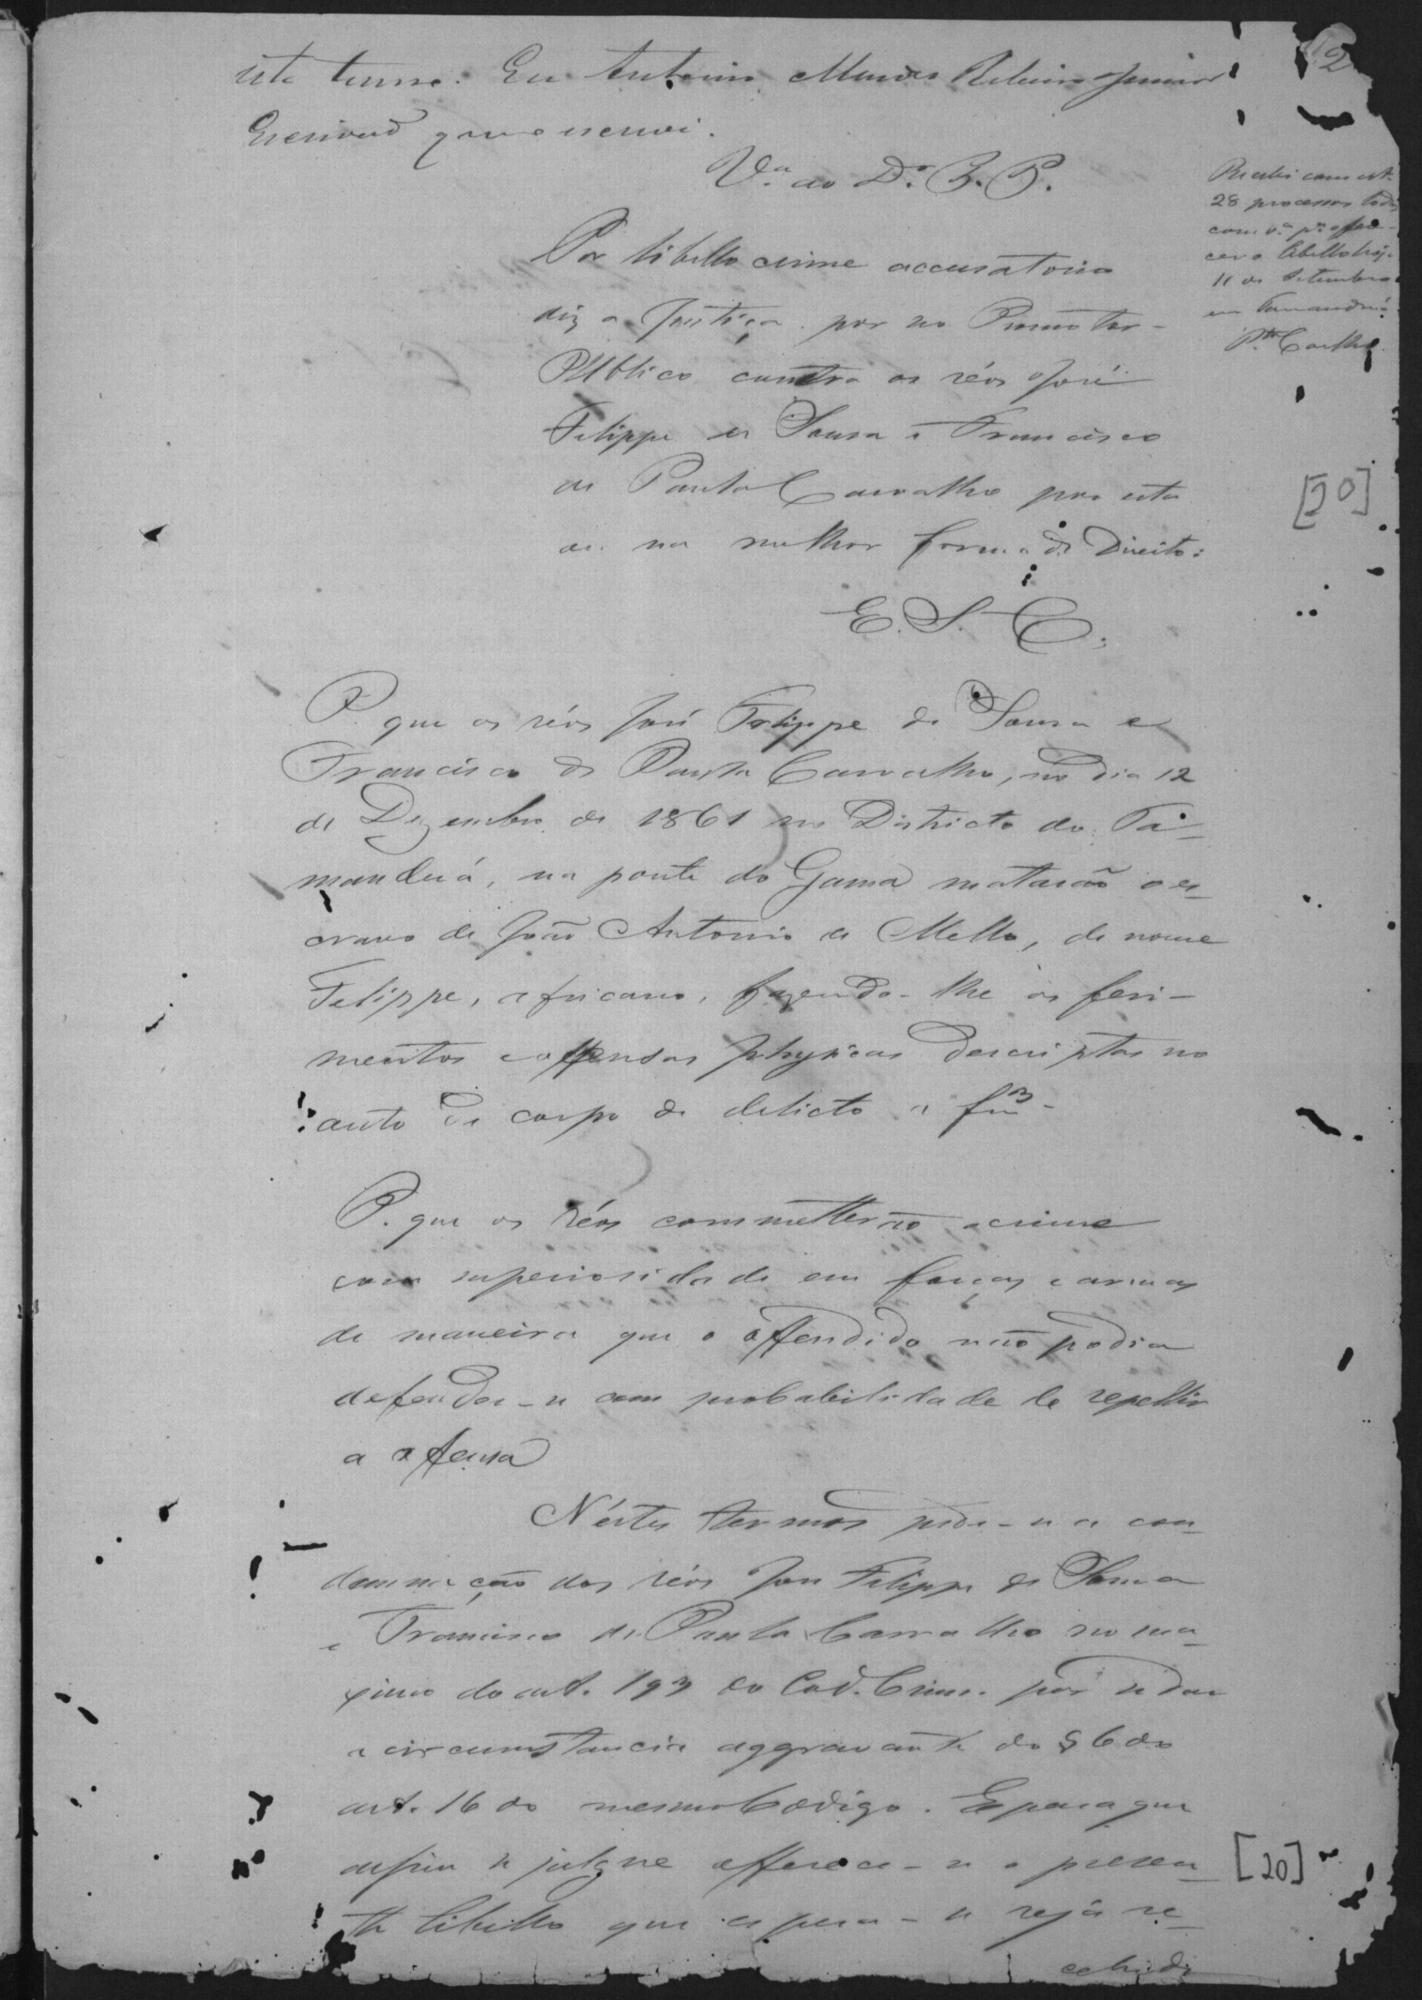 este termo. Eu Antonio Mendes Ribeiro Junior
Escrivaõ que o escrevi.
V.ta ao D.r P. P.
2
Recebi com est.
28 processos todos
com v.ta p.a offe-
cer o libello hoje
11 de Setembro
em Tamanduá.
Coelho
Por libello crime accusatorio
diz a Justiça por seo Promotor
Publico contra os réos José
Felippe de Sousa e Francisco
de Paula Carvalho por esta
e na melhor forma de Direito:
[20]
E. S. C.
P. que os réos José Felippe de Sousa e
Francisco de Paula Carvalho, no dia 12
de Dezembro de 1861 no Districto do Ta-
manduá, na ponte do Gama matarão o es-
cravo de João Antonio de Mello, de nome
Felippe, africano, fazendo-lhe os feri-
mentos e offensas physicas descriptas no
auto de corpo de delicto a f
P. que os réos commetterão o crime
com superioridade em forças e armas
de maneira que o offendido não podia
defender-se com probabilidade de repellir
a offensa
Néstes termos pede-se a con-
demnação dos réos José Felippe de Sousa
e Francisco de Paula Carvalho no ma-
ximo do art. 193 do Cod. Crim. por se dar
a circumstancia aggravante do § 6 do
art. 16 do mesmo Codigo. E para que
assim se julgue offerece-se o presen-
te libello que espera-se seja re-
[20]
cebido